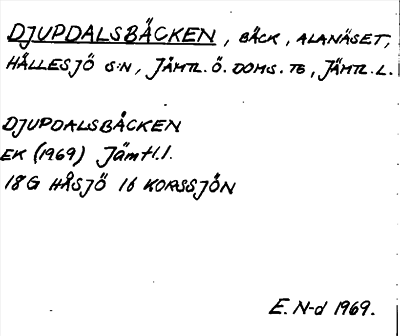 DJUPDALSBÄCKEN, BÄCK, ALANÄSET,
HÄLLESJÖ S:N, JÄMTL. Ö. DOMS. TG, JÄMTL. L.
DJUPDALSBÄCKEN
EK (1969) Jämtl.l.
18G HÅSJÖ 16 KORSSJÖN
E. N-d 1969.